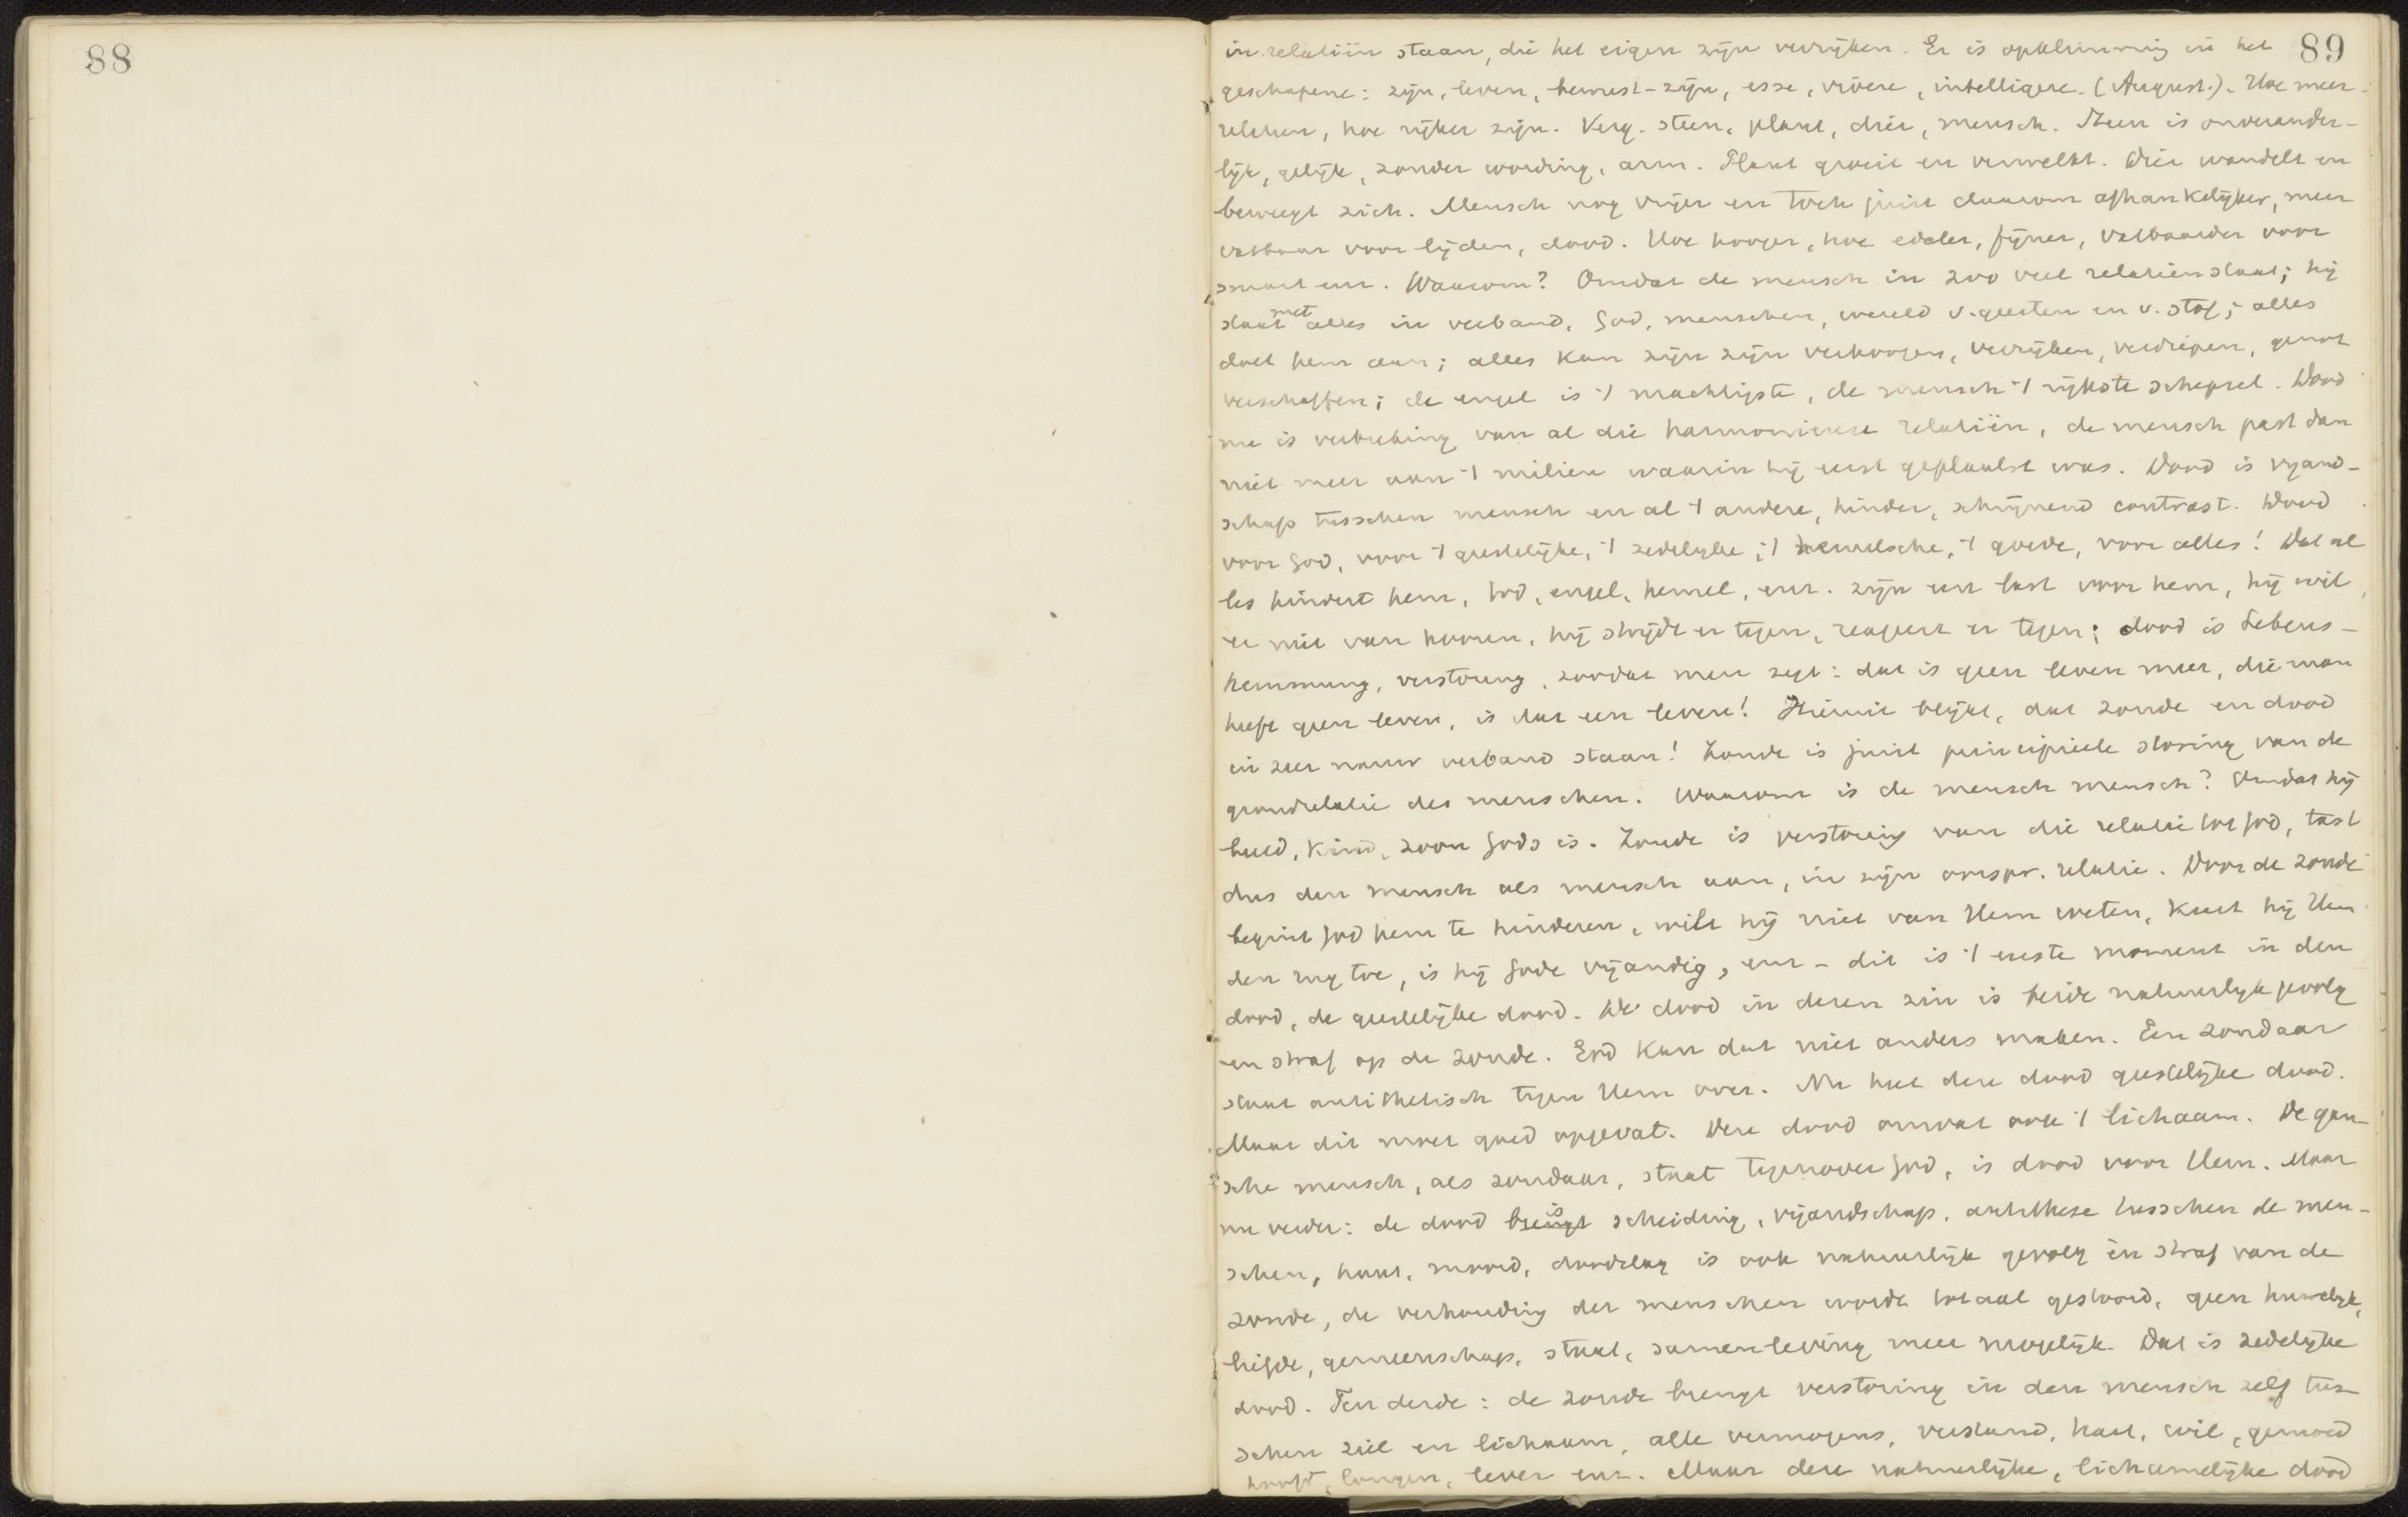 88
89
in relatiën staan, die het eigen zijn verrijken. Er is opklimming in het
geschapene: zijn, leven, bewust-zijn, esse, vivere, intelligere. (August.). Hoe meer
relatien, hoe rijker zijn. Verg. steen, plant, dier, mensch. Steen is onverander-
lijk, gelijk, zonder wording, arm. Plant groeit en verwelkt. Dier wandelt en
beweegt zich. Mensch nog vrijer en toch juist daarom afhankelijker, meer
vatbaar voor lijden, dood. Hoe hooger, hoe edeler, fijner, vatbaarder voor
smart enz. Waarom? Omdat de mensch in zoo veel relatiën staat; hij
staat met alles in verband, God, menschen, wereld v. geesten en v. stof; alles
doet hem aan; alles kan zijn zijn verhoogen, verrijken, verdiepen, genot
verschaffen; de engel is 't machtigste, de mensch 't rijkste schepsel. Dood
nu is verbreking van al die harmonieuse relatiën, de mensch past dan
niet meer aan 't milieu waarin hij eerst geplaatst was. Dood is vijand-
schap tusschen mensch en al 't andere, hinder, schrijnend contrast. Dood
voor God, voor 't geestelijke, 't zedelijke, 't hemelsche, 't goede, voor alles! Dat al
les hindert hem, God, engel, hemel, enz. zijn een last voor hem, hij wil
er niet van hooren, hij strijdt er tegen, reageert er tegen; dood is Lebens-
hemmung, verstoring, zoodat men zegt: dat is geen leven meer, die man
heeft geen leven, is dat een leven! Hieruit blijkt, dat zonde en dood
in zeer nauw verband staan! Zonde is juist principieele storing van de
grondrelatie des menschen. Waarom is de mensch mensch? Omdat hij
beeld, kind, zoon Gods is. Zonde is verstoring van die relatie tot God, tast
dus den mensch als mensch aan, in zijn oorspr. relatie. Door de zonde
begint God hem te hinderen, wilt hij niet van Hem weten, keert hij Hem
den rug toe, is hij Gode vijandig, enz - dit is 't eerste moment in den
dood, de geestelijke dood. De dood in dezen zin is beide natuurlijk gevolg
en straf op de zonde. God kan dat niet anders maken. Een zondaar
staat antithetisch tegen Hem over. Nu heet deze dood geestelijke dood.
Maar dit moet goed opgevat. Deze dood omvat ook 't lichaam. De gan-
sche mensch, als zondaar, staat tegenover God, is dood voor Hem. Maar
nu verder: de dood brengt is scheiding, vijandschap, antithese tusschen de men-
schen, haat, moord, doodslag is ook natuurlijk gevolg én straf van de
zonde, de verhouding der menschen wordt totaal gestoord, geen huwelijk,
liefde, gemeenschap, staat, samenleving meer mogelijk. Dat is zedelijke
dood. Ten derde: de zonde brengt verstoring in den mensch zelf tus-
schen ziel en lichaam, alle vermogens, verstand, hart, wil, gemoed
hoofd, longen, lever enz. Maar deze natuurlijke, lichamelijke dood